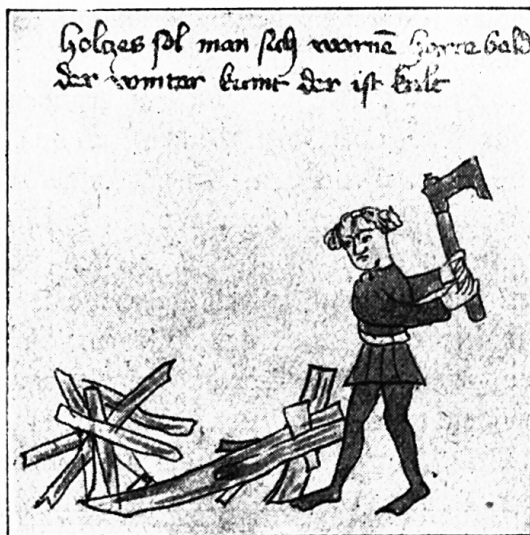 holczes sol man sich warnē harte bald
der winter kumt der ist kalt